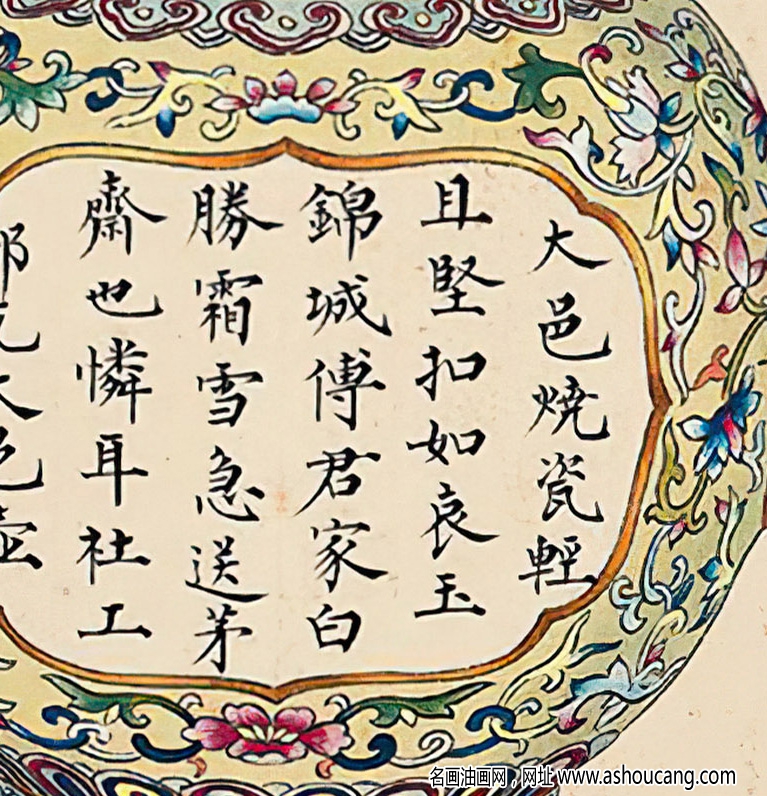 大邑燒瓷輕
且堅扣如哀玉
錦城傳君家白
勝霜雪急送茅
齋也憐耳社工
名画油画网，网址 www.ashoucang.com